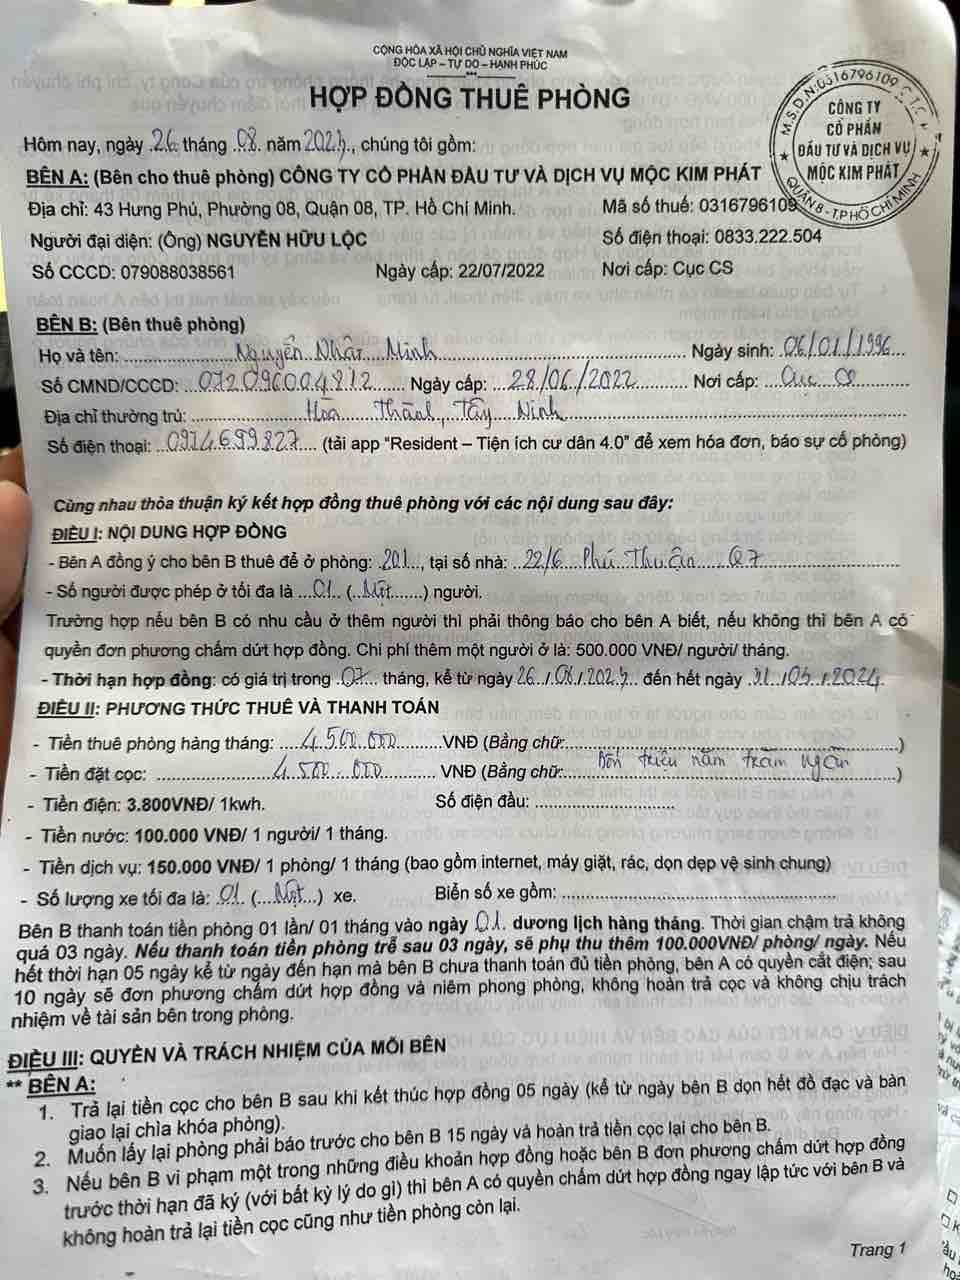 CỘNG HÒA XÃ HỘI CHỦ NGHĨA VIỆT NAM
ĐỘC LẬP – TỰ DO – HẠNH PHÚC
HỢP ĐỒNG THUÊ PHÒNG
M.S.D.N:0316796109 C.T.C.P
CÔNG TY
CỔ PHẦN
ĐẦU TƯ VÀ DỊCH VỤ
MỘC KIM PHÁT
QUẬN 8 - T.P HỒ CHÍ MINH
Hôm nay, ngày 26 tháng 08 năm 2023, chúng tôi gồm:
BÊN A: (Bên cho thuê phòng) CÔNG TY CỔ PHẦN ĐẦU TƯ VÀ DỊCH VỤ MỘC KIM PHÁT
Địa chỉ: 43 Hưng Phú, Phường 08, Quận 08, TP. Hồ Chí Minh. Mã số thuế: 0316796109
Người đại diện: (Ông) NGUYỄN HỮU LỘC Số điện thoại: 0833.222.504
Số CCCD: 079088038561 Ngày cấp: 22/07/2022 Nơi cấp: Cục CS
BÊN B: (Bên thuê phòng)
Họ và tên: Nguyễn Nhân Minh Ngày sinh: 06/01/1996
Số CMND/CCCD: 072096004812 Ngày cấp: 28/06/2022 Nơi cấp: Cục CS
Địa chỉ thường trú: Hòa Thành, Tây Ninh
Số điện thoại: 0974699827 (tải app "Resident – Tiện ích cư dân 4.0" để xem hóa đơn, báo sự cố phòng)
Cùng nhau thỏa thuận ký kết hợp đồng thuê phòng với các nội dung sau đây:
ĐIỀU I: NỘI DUNG HỢP ĐỒNG
- Bên A đồng ý cho bên B thuê để ở phòng: 201, tại số nhà: 22/6 Phú Thuận Q7
- Số người được phép ở tối đa là 01 (Một) người.
Trường hợp nếu bên B có nhu cầu ở thêm người thì phải thông báo cho bên A biết, nếu không thì bên A có
quyền đơn phương chấm dứt hợp đồng. Chi phí thêm một người ở là: 500.000 VNĐ/ người/ tháng.
- Thời hạn hợp đồng: có giá trị trong 07 tháng, kể từ ngày 26/08/2023 đến hết ngày 31/03/2024
ĐIỀU II: PHƯƠNG THỨC THUÊ VÀ THANH TOÁN
- Tiền thuê phòng hàng tháng: 4.500.000 VNĐ (Bằng chữ: )
- Tiền đặt cọc: 4.500.000 VNĐ (Bằng chữ: Bốn triệu năm trăm ngàn )
- Tiền điện: 3.800VNĐ/ 1kwh. Số điện đầu:
- Tiền nước: 100.000 VNĐ/ 1 người/ 1 tháng.
- Tiền dịch vụ: 150.000 VNĐ/ 1 phòng/ 1 tháng (bao gồm internet, máy giặt, rác, dọn dẹp vệ sinh chung)
- Số lượng xe tối đa là: 01 (Một) xe. Biển số xe gồm:
Bên B thanh toán tiền phòng 01 lần/ 01 tháng vào ngày 01 dương lịch hàng tháng. Thời gian chậm trả không
quá 03 ngày. Nếu thanh toán tiền phòng trễ sau 03 ngày, sẽ phụ thu thêm 100.000VNĐ/ phòng/ ngày. Nếu
hết thời hạn 05 ngày kể từ ngày đến hạn mà bên B chưa thanh toán đủ tiền phòng, bên A có quyền cắt điện; sau
10 ngày sẽ đơn phương chấm dứt hợp đồng và niêm phong phòng, không hoàn trả cọc và không chịu trách
nhiệm về tài sản bên trong phòng.
ĐIỀU III: QUYỀN VÀ TRÁCH NHIỆM CỦA MỖI BÊN
** BÊN A:
1. Trả lại tiền cọc cho bên B sau khi kết thúc hợp đồng 05 ngày (kể từ ngày bên B dọn hết đồ đạc và bàn
giao lại chìa khóa phòng).
2. Muốn lấy lại phòng phải báo trước cho bên B 15 ngày và hoàn trả tiền cọc lại cho bên B.
3. Nếu bên B vi phạm một trong những điều khoản hợp đồng hoặc bên B đơn phương chấm dứt hợp đồng
trước thời hạn đã ký (với bất kỳ lý do gì) thì bên A có quyền chấm dứt hợp đồng ngay lập tức với bên B và
không hoàn trả lại tiền cọc cũng như tiền phòng còn lại.
Trang 1